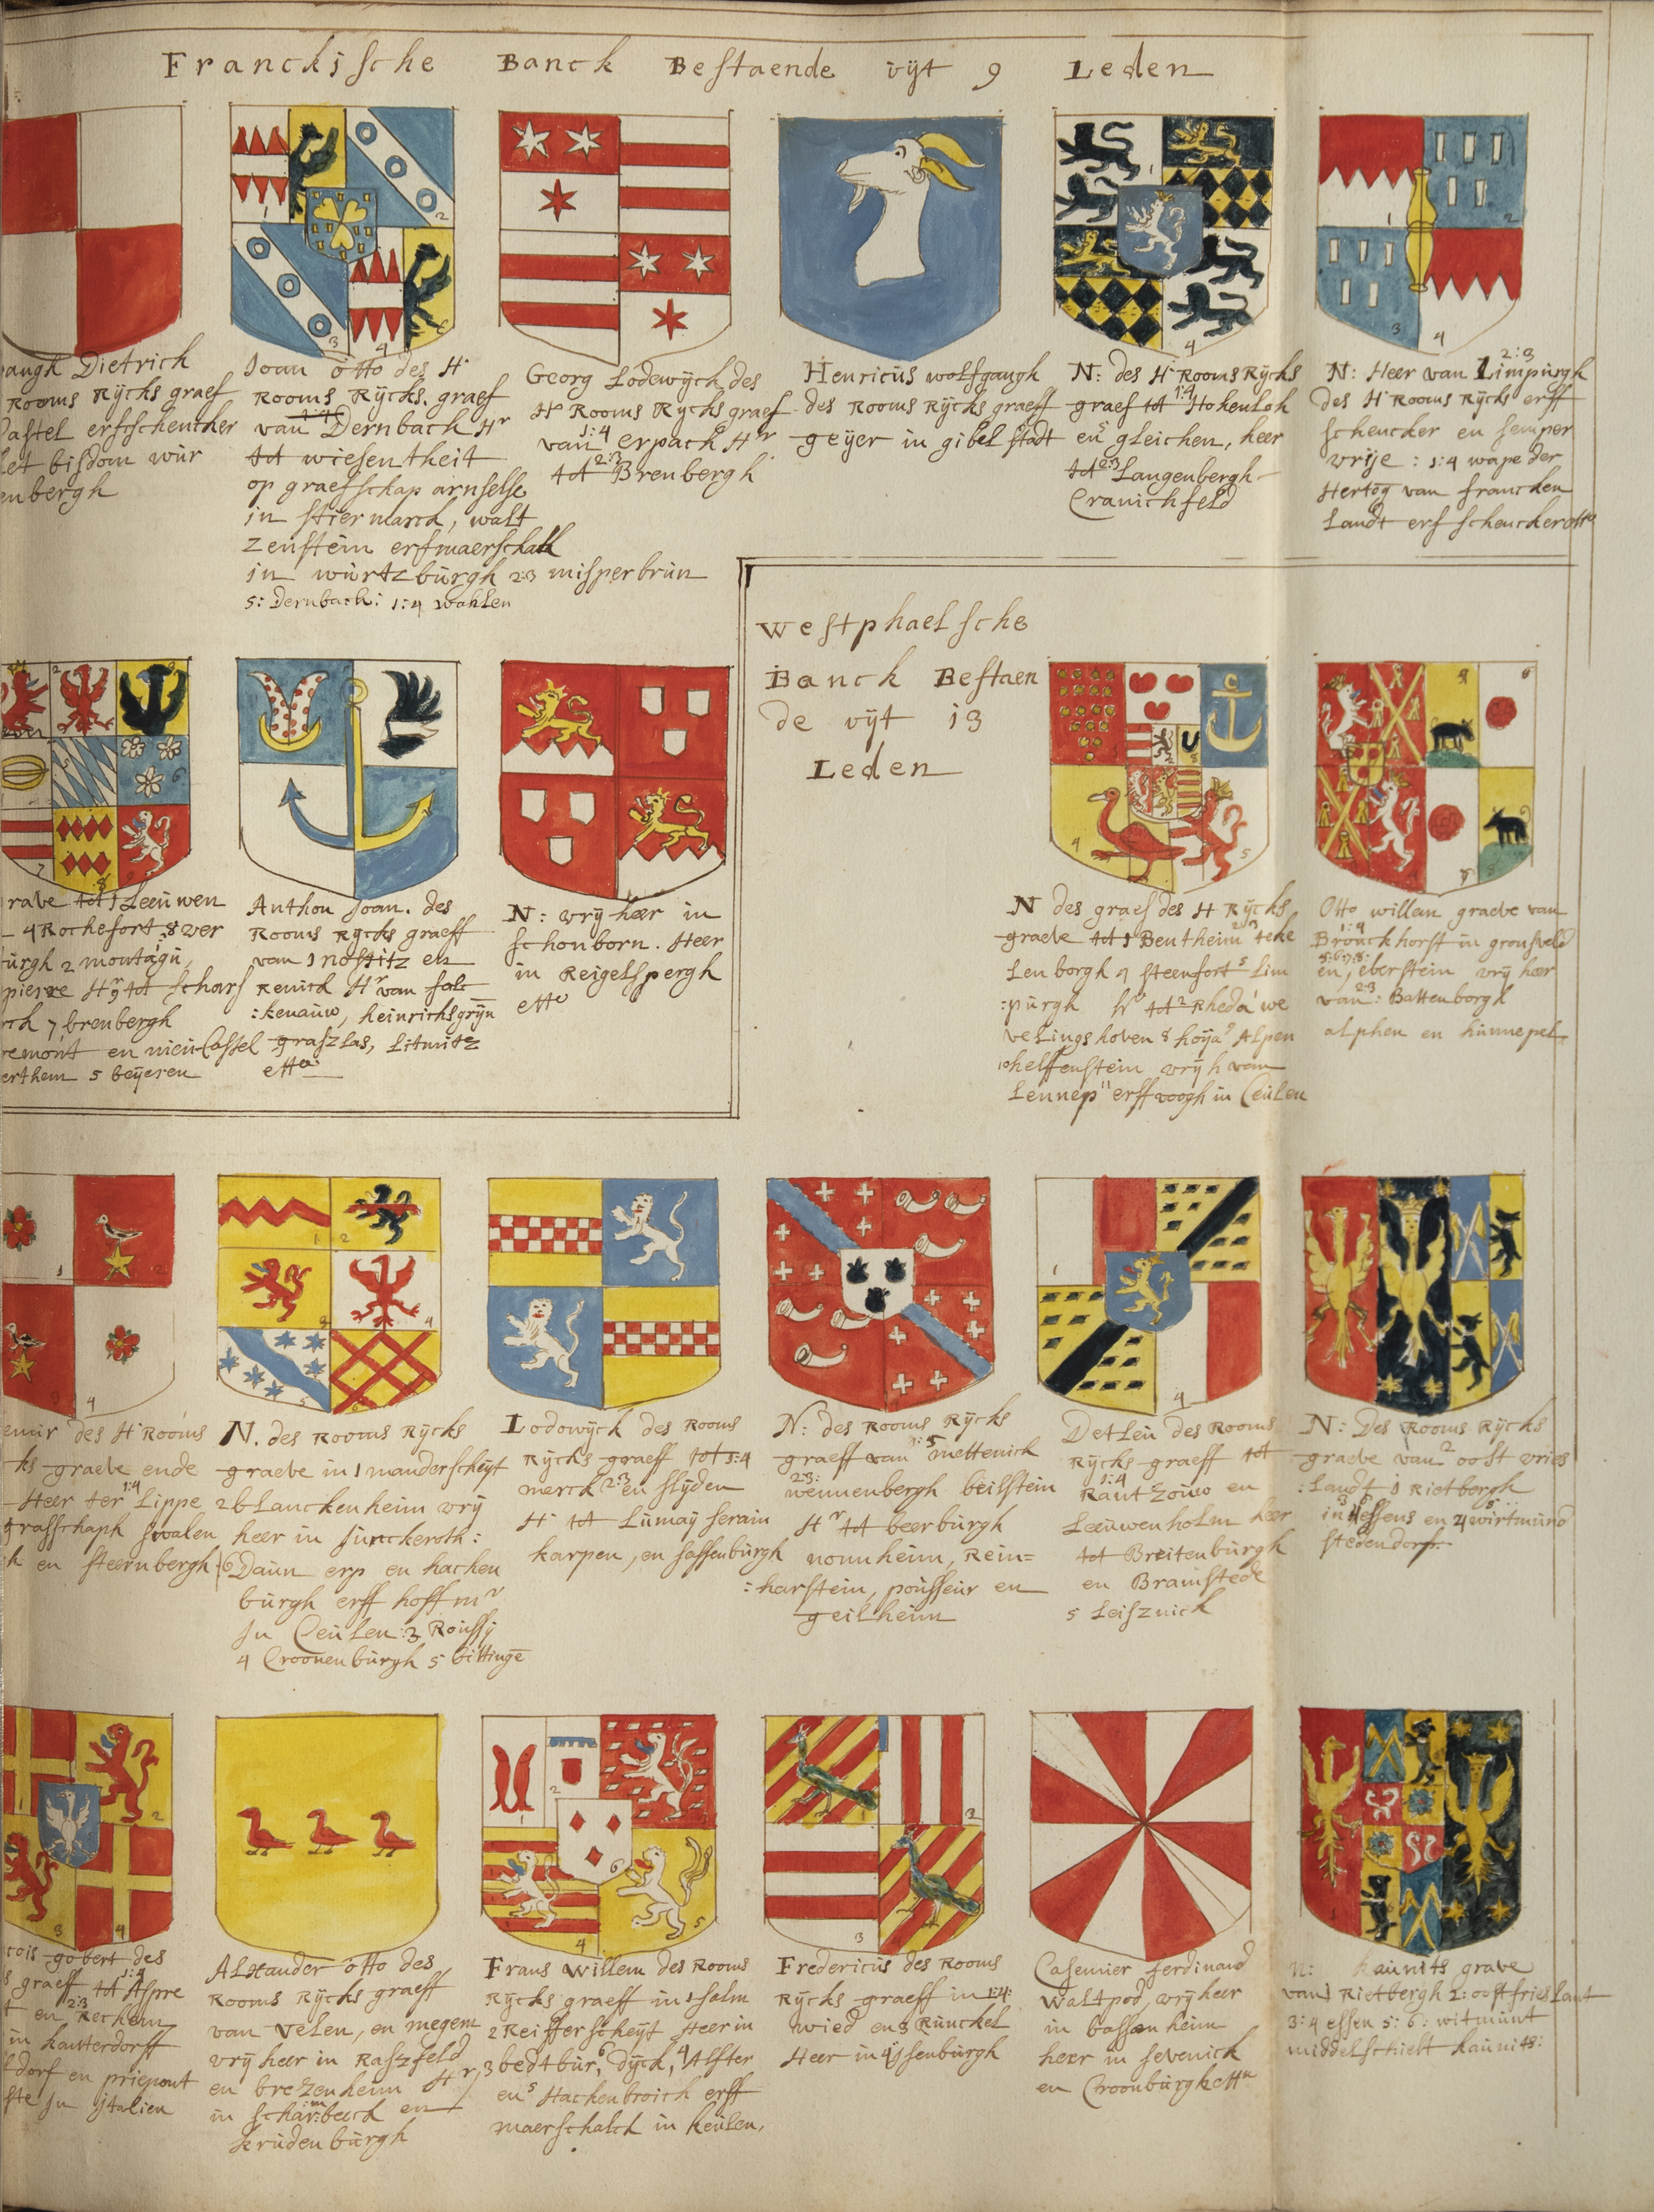 Franckische Banck Bestaende vijt 9 Leden
Dietrich
Rooms Rijcks graef
Castel erfschencker
bisdom wur
enbergh
Joan otto des H
Rooms Rijcks. graef
van 1:4 Dernbach Hr
tot wiesentheit
op graefschap arnfelse
in stiermarck, walt
zenstein erfmaerschalk
in wurtzburgh 2:3 misperbrun
5: Dernbach: 1:4 wahlen
Georg Lodewijck des
H Rooms Rijcks graef
van 1:4 erpach Hr
tot 2:3 Brenbergh
Henricus wolfgangh
des Rooms Rijcks graeff
geijer in gibelstadt
N: des H Rooms Rijcks
graef tot 1:4 Hohenloh
en 5 gleichen, heer
tot 2:3 Langenbergh
Cranichfeld
N: Heer van 2:3 Limpurgh
des H Rooms Rijcks erff
schencker en semper
vrije : 1:4 wape der
Hertog van francken
Landt erfschencker
rave tot 1 Leeuwen
4 Rochefort 8 wer
urgh 2 montagu,
pierre Hr 9 tot scharf
7 brenbergh
remont en nieu Cassel
erthem 5 beijeren
Anthon Joan. des
Rooms Rijcks graeff
van 1 nostitz en
Renick Hr van falc
:kenauw, heinrichsgrun
graszlas, Litmitz
etta
N: vrijheer in
schonborn. Heer
in Reigelspergh
etta
westphaelsche
Banck Bestaen
de vijt 13
Leden
N des graef des H Rijcks
graeve tot 1 Bentheim 2:3 teke
Lenborgh 4 steenfort 5 Lim
:purgh hr tot 2 Rheda we
velingshoven 8 hoya 9 Alpen
10 helffenstein vrij h van
Lennep 11 erffvoogh in Ceulen
Otto willem graeve van
1:4 Bronckhorst in gronsveld
5:6:7:8: en, eberstein vrij heer
van 2:3 : Battenborgh
alphen en hunnepel
des H Rooms
ks graeve ende
Heer ter 1:4 Lippe
grafschaph swalen
en steernbergh
N. des Rooms Rijcks
graeve in 1 manderscheijt
2 bLanckenheim vrij
heer in Junckeroth:
6 Daun erp en hachen
burgh erff hoffmr
In Ceulen: 3 Roussij
4 Croonenburgh 5 bittinge
Lodowijck des Rooms
Rijcks graeff tot 1:4
merck 2:3 en slijden
H tot Lumaij serain
karpen, en saffenburgh
N: des Rooms Rijcks
graeff van 1:5 mettenich
2:3: wennenbergh beilstein
Hr tot beerburgh
nonnheim, Rein=
:harstein, pousseur en
geilheim
Detleu des Rooms
Rijcks graeff tot
1:4 Rantzouw en
Leeuwenholm heer
tot Breitenburgh
en Bramstede
5 Leisznick
N: Des Rooms Rijcks
graeve van 2 oost vries
:Landt 1 Rietbergh
in 3:6 essens en 4:5 wirtmund
stedendorf.
gobert des
graeff tot 1:4 Aspre
en 2:3 Rechem
in kauterdorff
dorf en priepont
In ijtalien
ALExander otto des
Rooms Rijcks graeff
van velen, en megem
vrijheer in Raszfeld
en brezenheim Hr
in scharmbeeck en
krudenburgh
Frans willem des Rooms
Rijcks graeff in 1 salm
2 Reifferscheijt Heer in
3 bedtbur, 6 Dijck, 4 Alfter
en 5 Hackenbroich erff
maerschalck in keulen,
Fredericus des Rooms
Rijcks graeff in 1:4:
wied en 3 Runckel
Heer in ijssenburgh
Casemier ferdinand
waltpod, vrijheer
in bassenheim
heer in sevenich
en Croonburgh etta
n: kaunits grave
van 1 Rietbergh 2: oostfrieslant
3:4 essen 5:6: witmunt
middelschielt kaunits: